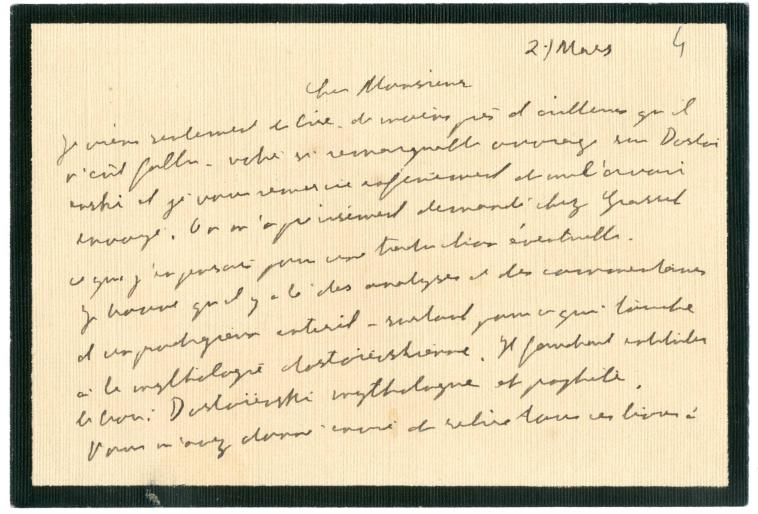 2 Mars 4
Cher Monsieur
Je viens seulement de lire, de moins près d'ailleurs qu'il
n'eût fallu, votre si remarquable ouvrage sur Dostoi
enski et je vous remercie infiniment de me l'avoir
envoyé. On m'a précisément demandé chez Grasset
ce que j'en pensais pour une traduction éventuelle.
Je trouve qu'il y a là des analyses et des commentaires
d'un prodigieux intérêt – surtout pour ce qui touche
à la mythologie dostoïevskienne. Il faudrait intituler
le livre : Dostoïevski mythologue et prophète.
Vous m'avez donné envie de relire tous ces livres à